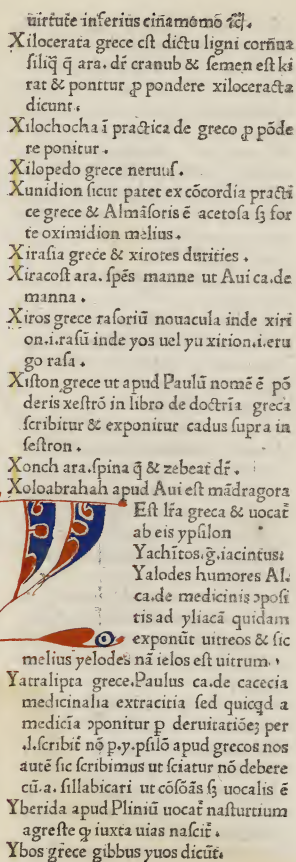 uirtute inferius cinamomo ⁊c̄.
Xilocerata grece est dictu ligni cornua
siliq̄ q̄ ara. dr̄ cranub & semen est ki
rat & ponitur ꝓ pondere xiloceracta
dicunt.
Xilochocha ī practica de greco ꝓ pōde
re ponitur.
Xilopedo grece neruus.
Xunidion sicut patet ex cōcordia practi
ce grece & Almāsoris ē acetosa sꝫ for
te oximidion melius.
Xirasia grece & xirotes durities.
Xiracost ara. spēs manne ut Aui ca.de
manna.
Xiros grece rasoriū nouacula inde xiri
on.i.rasū inde yos uel yu xirion.i.eru
go rasa.
Xiston grece ut apud Paulū nomē ē pō
deris xestrō in libro de doctrīa greca
scribitur & exponitur cadus supra in
sestron.
Xonch ara.spina q̄ & zebeat dr̄.
Xoloabrahah apud Aui est mādragora
Est lr̄a greca & uocat̄
ab eis ypsilon
Yachītos.ḡ.iacintus:
Yalodes humores Al.
ca.de medicinis ɔposi
tis ad yliacā quidam
exponūt uitreos & sic
melius yelodes nā ielos est uitrum.
Yatralipta grece.Paulus ca.de cacecia
medicinalia extracitia sed quicqd a
medicīa ɔponitur p̱ deruitatiōeꝫ per
.I.scribit̄ nō p.y.psilō apud grecos nos
autē sic scribimus ut sciatur nō debere
cū.a. sillabicari ut cōsōās sꝫ uocalis ē
Yberida apud Pliniū uocat̄ nasturtium
agreste ꝙ iuxta uias nascit̄.
Ybos grece gibbus yuos dicūt.